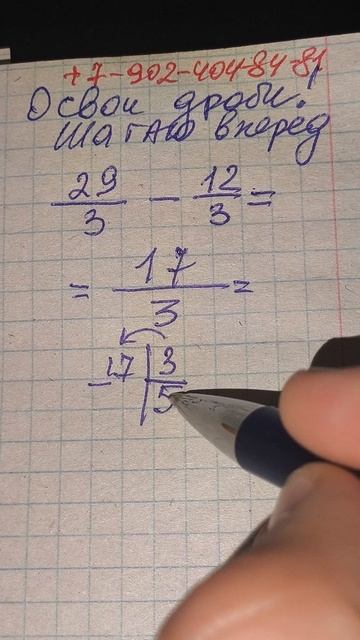 +7-902-404-84-81
Освои дроби!
Шагаю вперед
29/3 - 12/3 =
= 17/3 =
-17|3
5